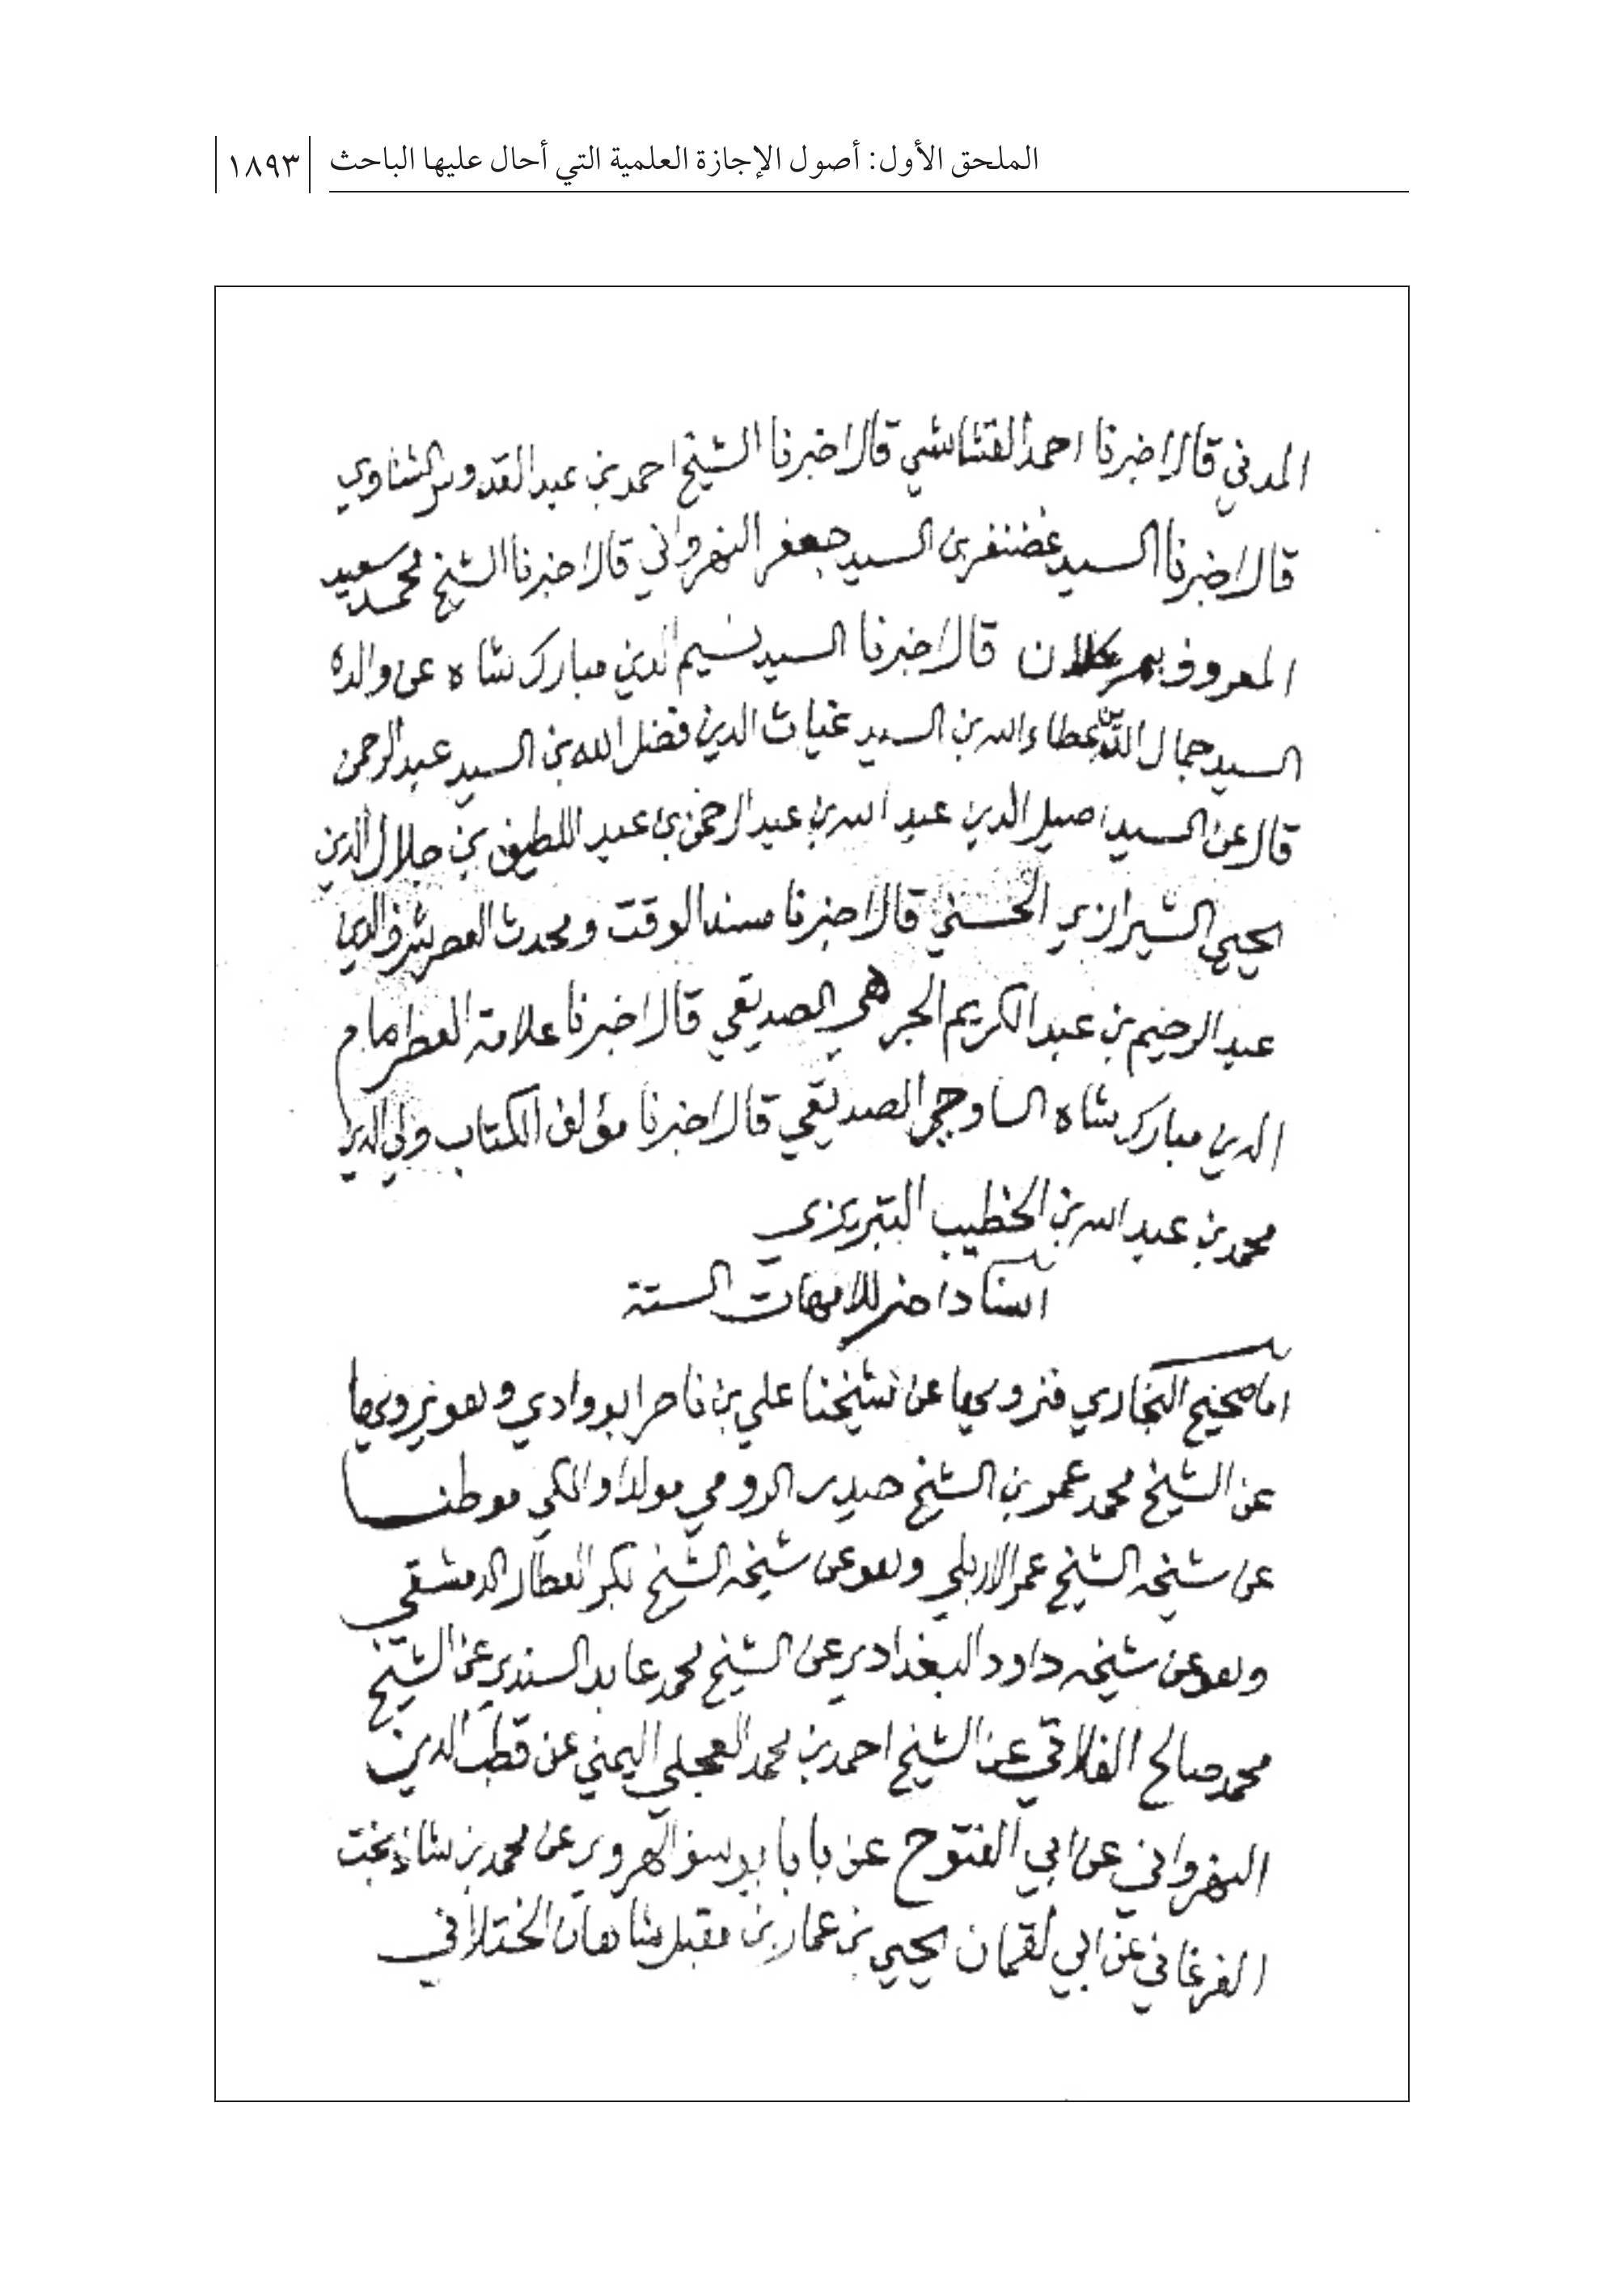 الملحق الأول: أصول الإجازة العلمية التي أحال عليها الباحث ١٨٩٣
المدني قال اخبرنا احمد القشاشي قال اخبرنا الشيخ احمد بن عبد القدوس الشناوي
قال اخبرنا السيد غضنفر بن السيد جعفر النهرواني قال اخبرنا الشيخ محمد سعيد
المعروف بمير كلان قال اخبرنا السيد نسيم الدين مبارك شاه عن والده
السيد جمال الدين عطاء الله بن السيد غياث الدين فضل الله بن السيد عبد الرحمن
قال عن السيد اصيل الدين عبد الله بن عبد الرحمن بن عبد اللطيف بن جلال الدين
يحيى الشيرازي الحسني قال اخبرنا مسند الوقت ومحدث العصر شرف الدين
عبد الرحيم بن عبد الكريم الجرهي الصديقي قال اخبرنا علامة العصر امام
الدين مبارك شاه الساوجي الصديقي قال اخبرنا مؤلف الكتاب ولي الدين
محمد بن عبد الله بن الخطيب التبريزي
اسناد اخر للامهات الستة
اما صحيح البخاري فنرويها عن شيخنا علي بن ناصر ابو وادي وهو يرويها
عن الشيخ محمد عمر بن الشيخ حيدر الرومي مولدا والمكي موطنا
عن شيخه الشيخ عمر الاربلي وهو عن شيخه الشيخ بكر العطار الدمشقي
وهو عن شيخه داود البغدادي عن الشيخ محمد عابد السندي عن الشيخ
محمد صالح الفلاني عن الشيخ احمد بن محمد العجلي اليمني عن قطب الدين
النهرواني عن ابي الفتوح عن بابا يوسف الهروي عن محمد بن شاذبخت
الفرغاني عن ابي لقمان يحيى بن عمار بن مقبل شاهان الختلاني